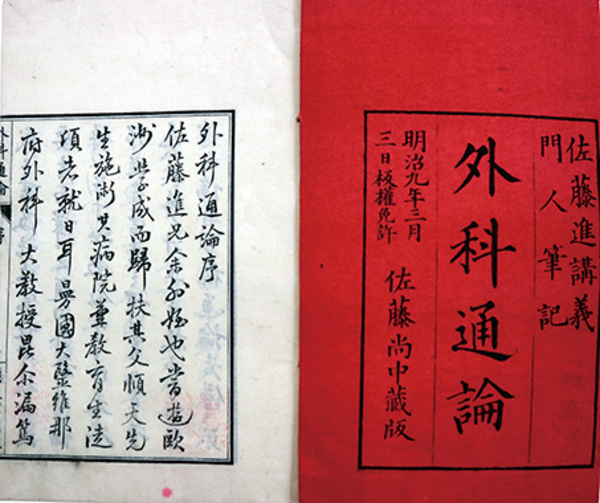 佐藤進講義
門人筆記
外科通論
明治九年三月
三日板權免許
佐藤尚中藏版
外科通論序
佐藤進兄余外姪也嘗遊歐
洲學成而歸扶其父順天先
生施術其病院兼教育生徒
頃者就日耳曼國大毉維那
府外科大教授毘尒漏篤
外科通論 序